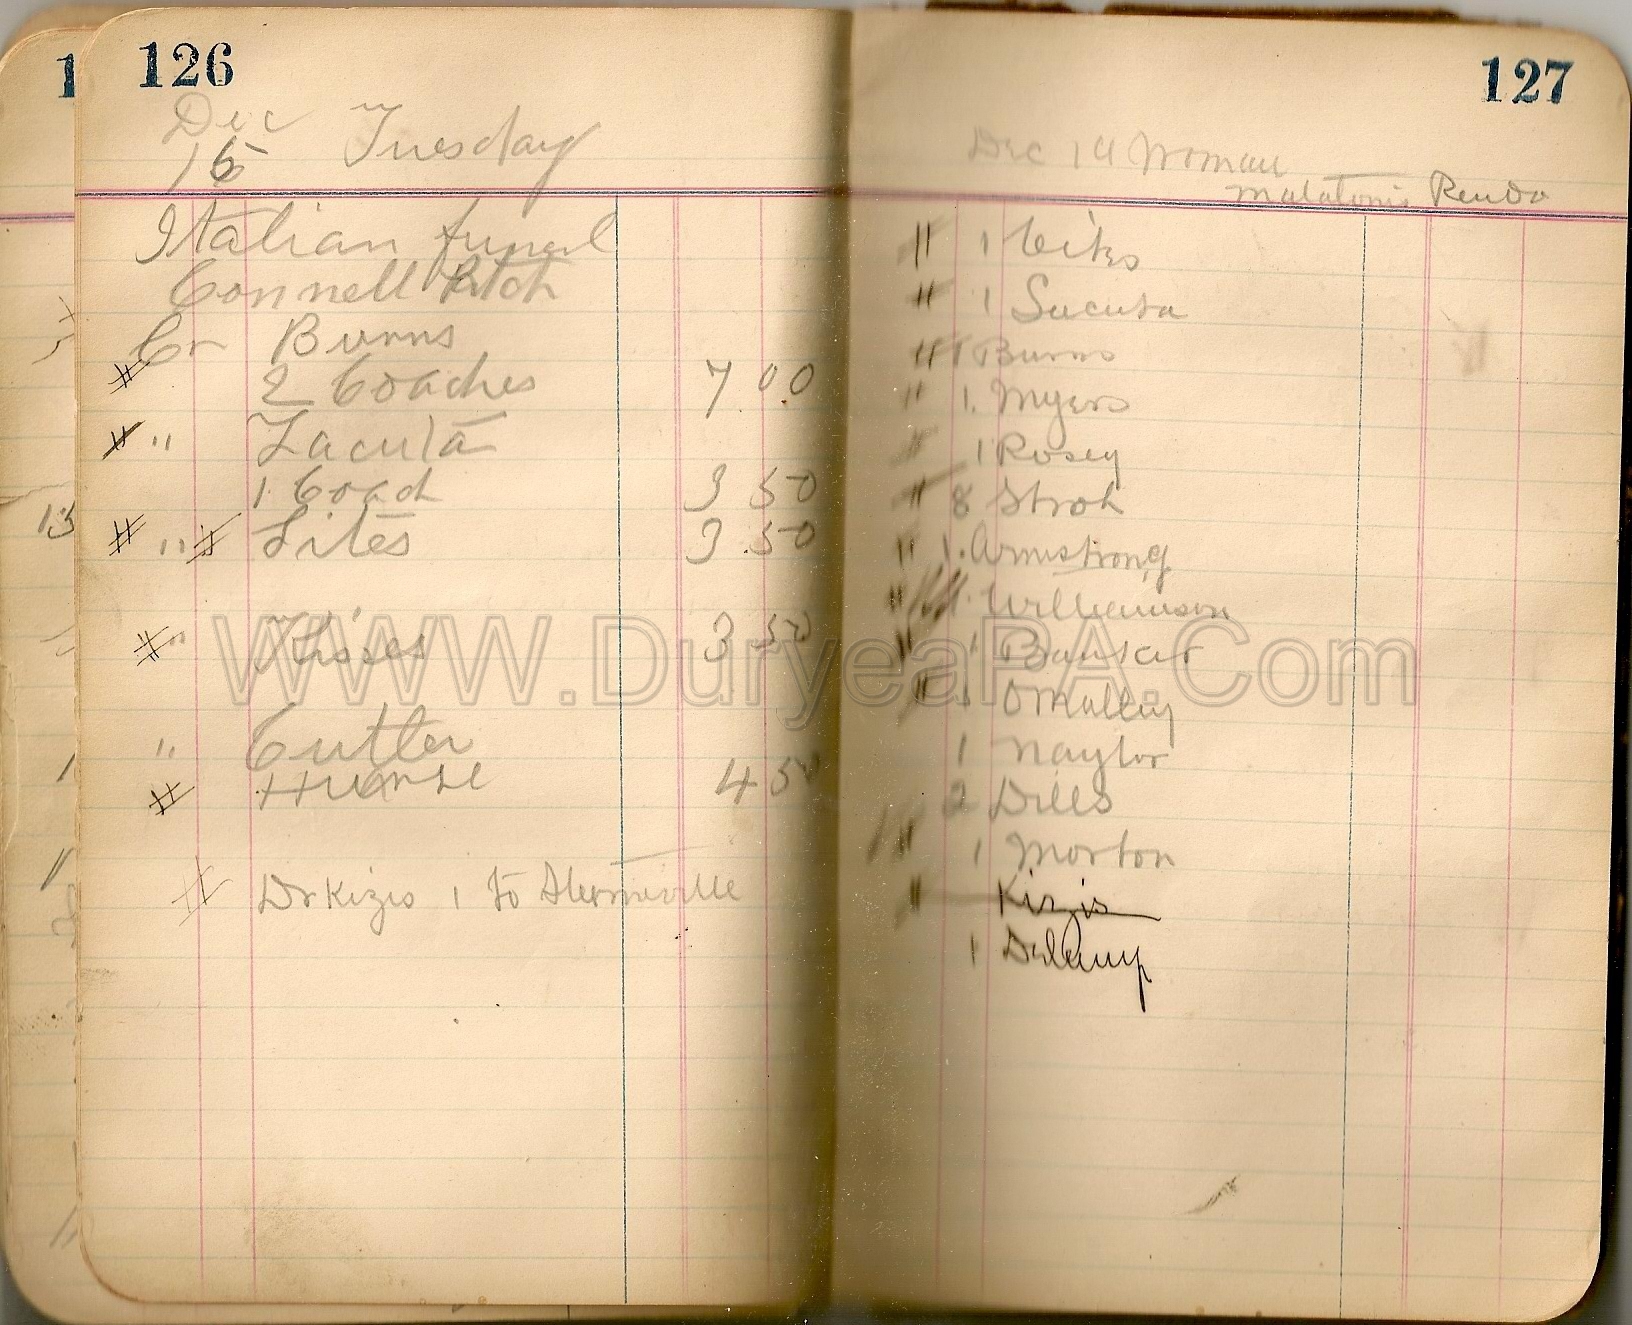 126
Dec
15 Tuesday
Italian funerl
Connell Patch
Cr Burns
# 2 Coaches 7 00
# " Zacuta
1 Coach 3 50
# " # Sites 3 50
# " Kisses 3 50
" Cutler
# Hurse 4 50
# Dr Kizis 1 to
127
Dec 14 Woman
Renda
" 1
" 1 Sucuta
" 1 Burns
" 1 Myers
" 1 Rosey
" 8 Stroh
" 1 Armstrong
" 1 Williamson
" 1 Bunker
" 1 OMalley
1 Naylor
2 Dills
" 1 Morton
" Kizis
1
WWW.DuryeaPA.Com